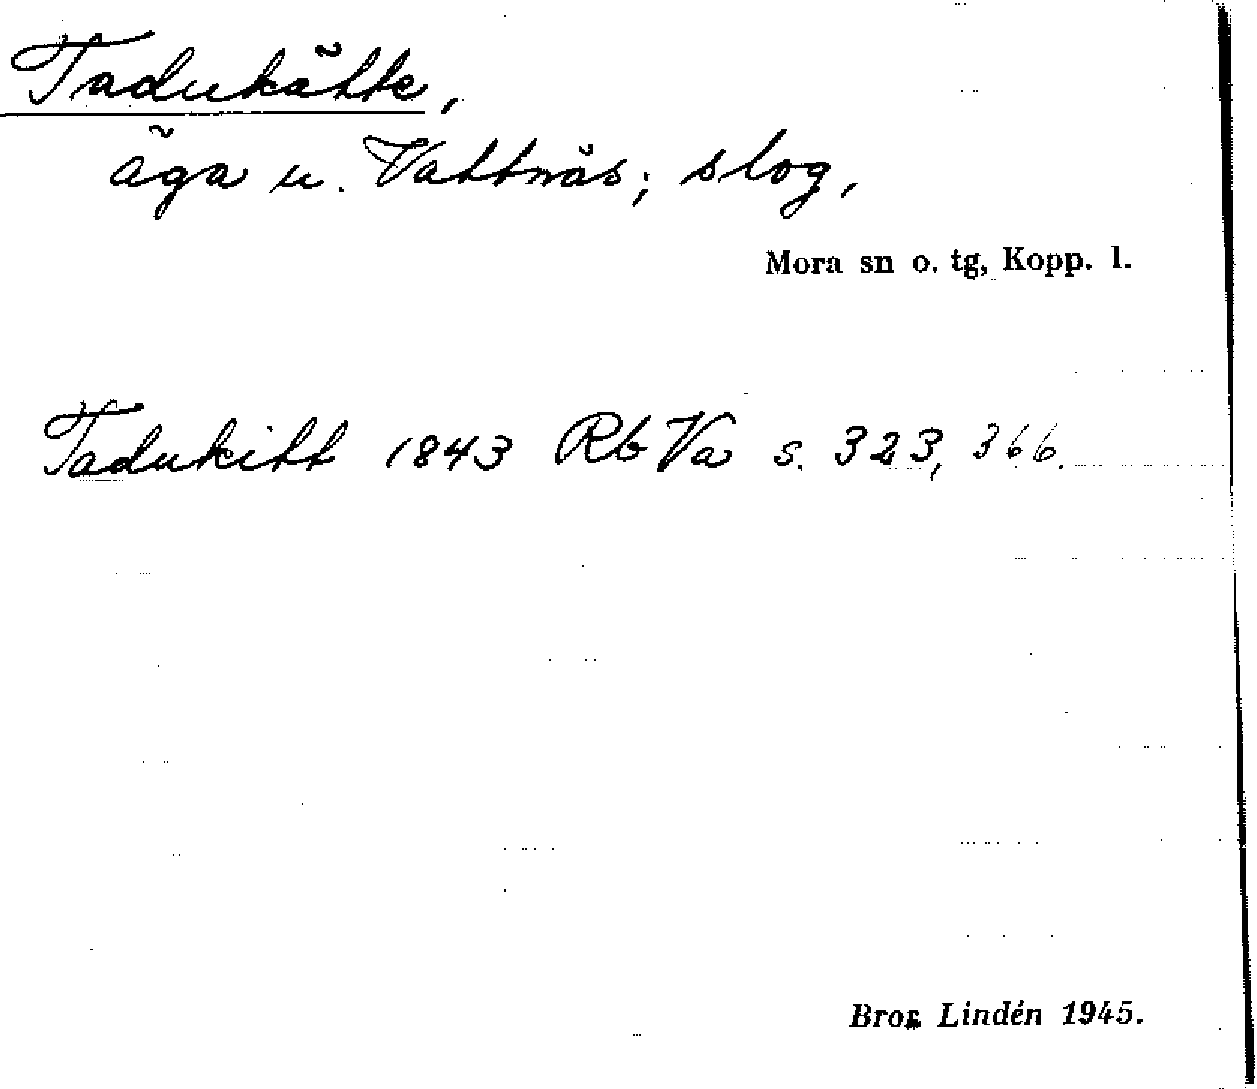 Tadukätte,
äga u. Vattnäs; slog,
Mora sn o. tg, Kopp. l.
Tadukitt 1843 Rb Va s. 323, 366.
Bror Lindén 1945.